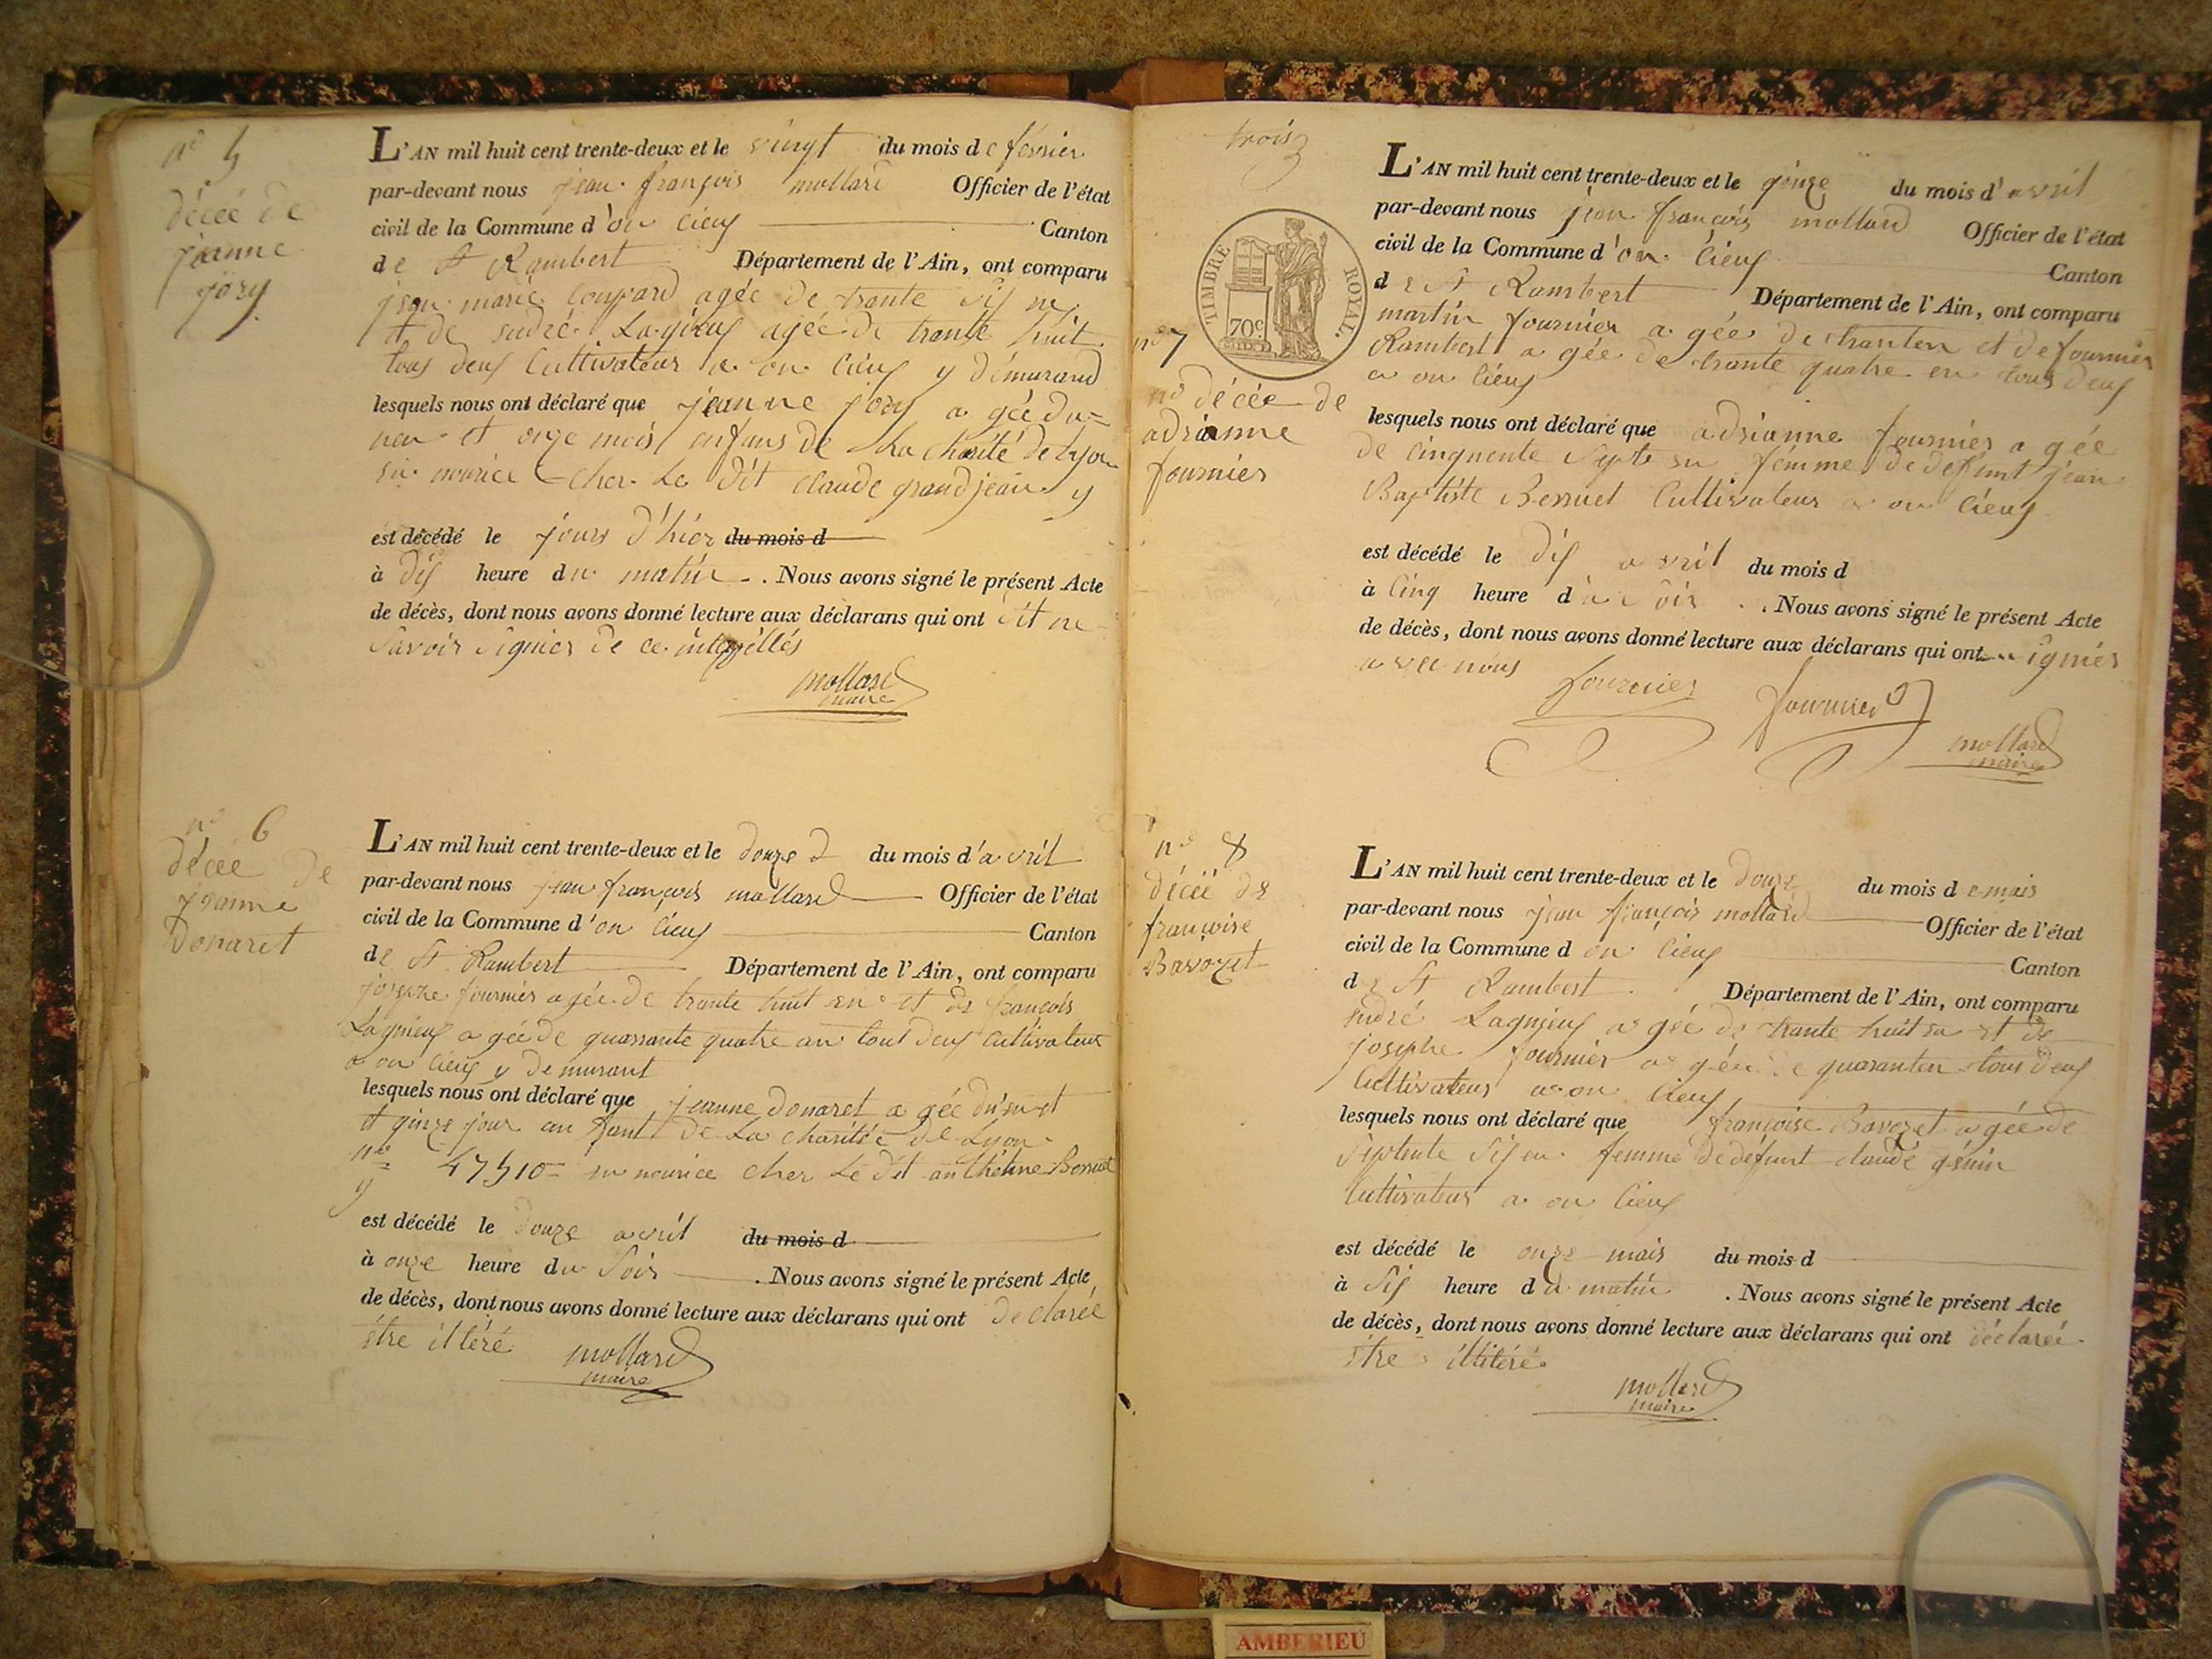 n° 5
décée de
jeanne
jozy
L'AN mil huit cent trente-deux et le vingt du mois de février
par-devant nous jean françois mollard Officier de l'état
civil de la Commune d'on cieux Canton
de St Rambert Département de l'Ain, ont comparu
jean marie agée de trante
et de andré Lagnieux agée de trante huit
tous deux Cultivateur a on cieux y démurand
lesquels nous ont déclaré que jeanne jozy a gée du
neu et onze mois enfans de La charité de Lyon
en nourice cher Le dit claude grandjean y
est décédé le jours d'hier du mois d
à dix heure du matin . Nous avons signé le présent Acte
de décès, dont nous avons donné lecture aux déclarans qui ont dit ne
savoir signier de ce intepéllés
mollard
maire
n° 6
décée de
jeanne
Donaret
L'AN mil huit cent trente-deux et le douze du mois d'avril
par-devant nous jean françois mollard Officier de l'état
civil de la Commune d'on cieux Canton
de St Rambert Département de l'Ain, ont comparu
josephe fournier agée de trante huit en et de françois
Lagnieux a gée de quarrante quatre an tout deux Cultivateur
a on cieux y demurant
lesquels nous ont déclaré que jeanne Donaret a gée d'un en et
et ginze jour an fant de La charitée de Lyon
n° 47510 en nourice cher Le dit anthelme Bernuet
y
est décédé le douze avril du mois d
à onze heure du soir . Nous avons signé le présent Acte
de décès, dont nous avons donné lecture aux déclarans qui ont declareé
être illéré
mollard
maire
trois
3
TIMBRE ROYAL
70c
n° 7
n° décée de
adrianne
fournier
L'AN mil huit cent trente-deux et le ginze du mois d'avril
par-devant nous jean françois mollard Officier de l'état
civil de la Commune d'on cieux Canton
de St Rambert Département de l'Ain, ont comparu
martin fournier a gée de tranten et de fournier
Rambert a gée de trante quatre en tous deux
a on cieux
lesquels nous ont déclaré que adrianne fournier a gée
de cinquente septe en femme de defunt jean
Baptiste Bernuet Cultivateur a on cieux
est décédé le dix avril du mois d
à cinq heure du soir . Nous avons signé le présent Acte
de décès, dont nous avons donné lecture aux déclarans qui ont signiér
avec nous
fournier
fournier
mollard
maire
n° 8
décéé de
françoise
Bavozet
L'AN mil huit cent trente-deux et le douze du mois de mais
par-devant nous jean françois mollard Officier de l'état
civil de la Commune d on cieux Canton
de St Rambert Département de l'Ain, ont comparu
andré Lagnieux a gée de trante huit en et de
josephe fournier a gée de quaranten tous deux
Cultivateur a on cieux
lesquels nous ont déclaré que françoise Bavozet a gée de
septente six en femme de défunt claude génin
Cultivateur a on cieux
est décédé le onze mais du mois d
à six heure du matin . Nous avons signé le présent Acte
de décès, dont nous avons donné lecture aux déclarans qui ont déclareé
être illitéré
mollard
maire
AMBERIEU